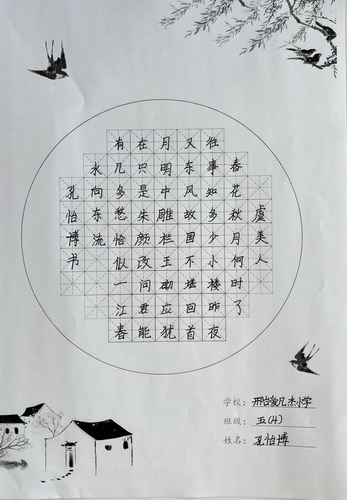 虞美人
春花秋月何时了
往事知多少小楼昨夜
又东风故国不堪回首
月明中雕栏玉砌应犹
在只是朱颜改问君能
有几多愁恰似一江春
水向东流
孔怡博书
学校: 小学
班级: 五(4)
姓名: 孔怡博